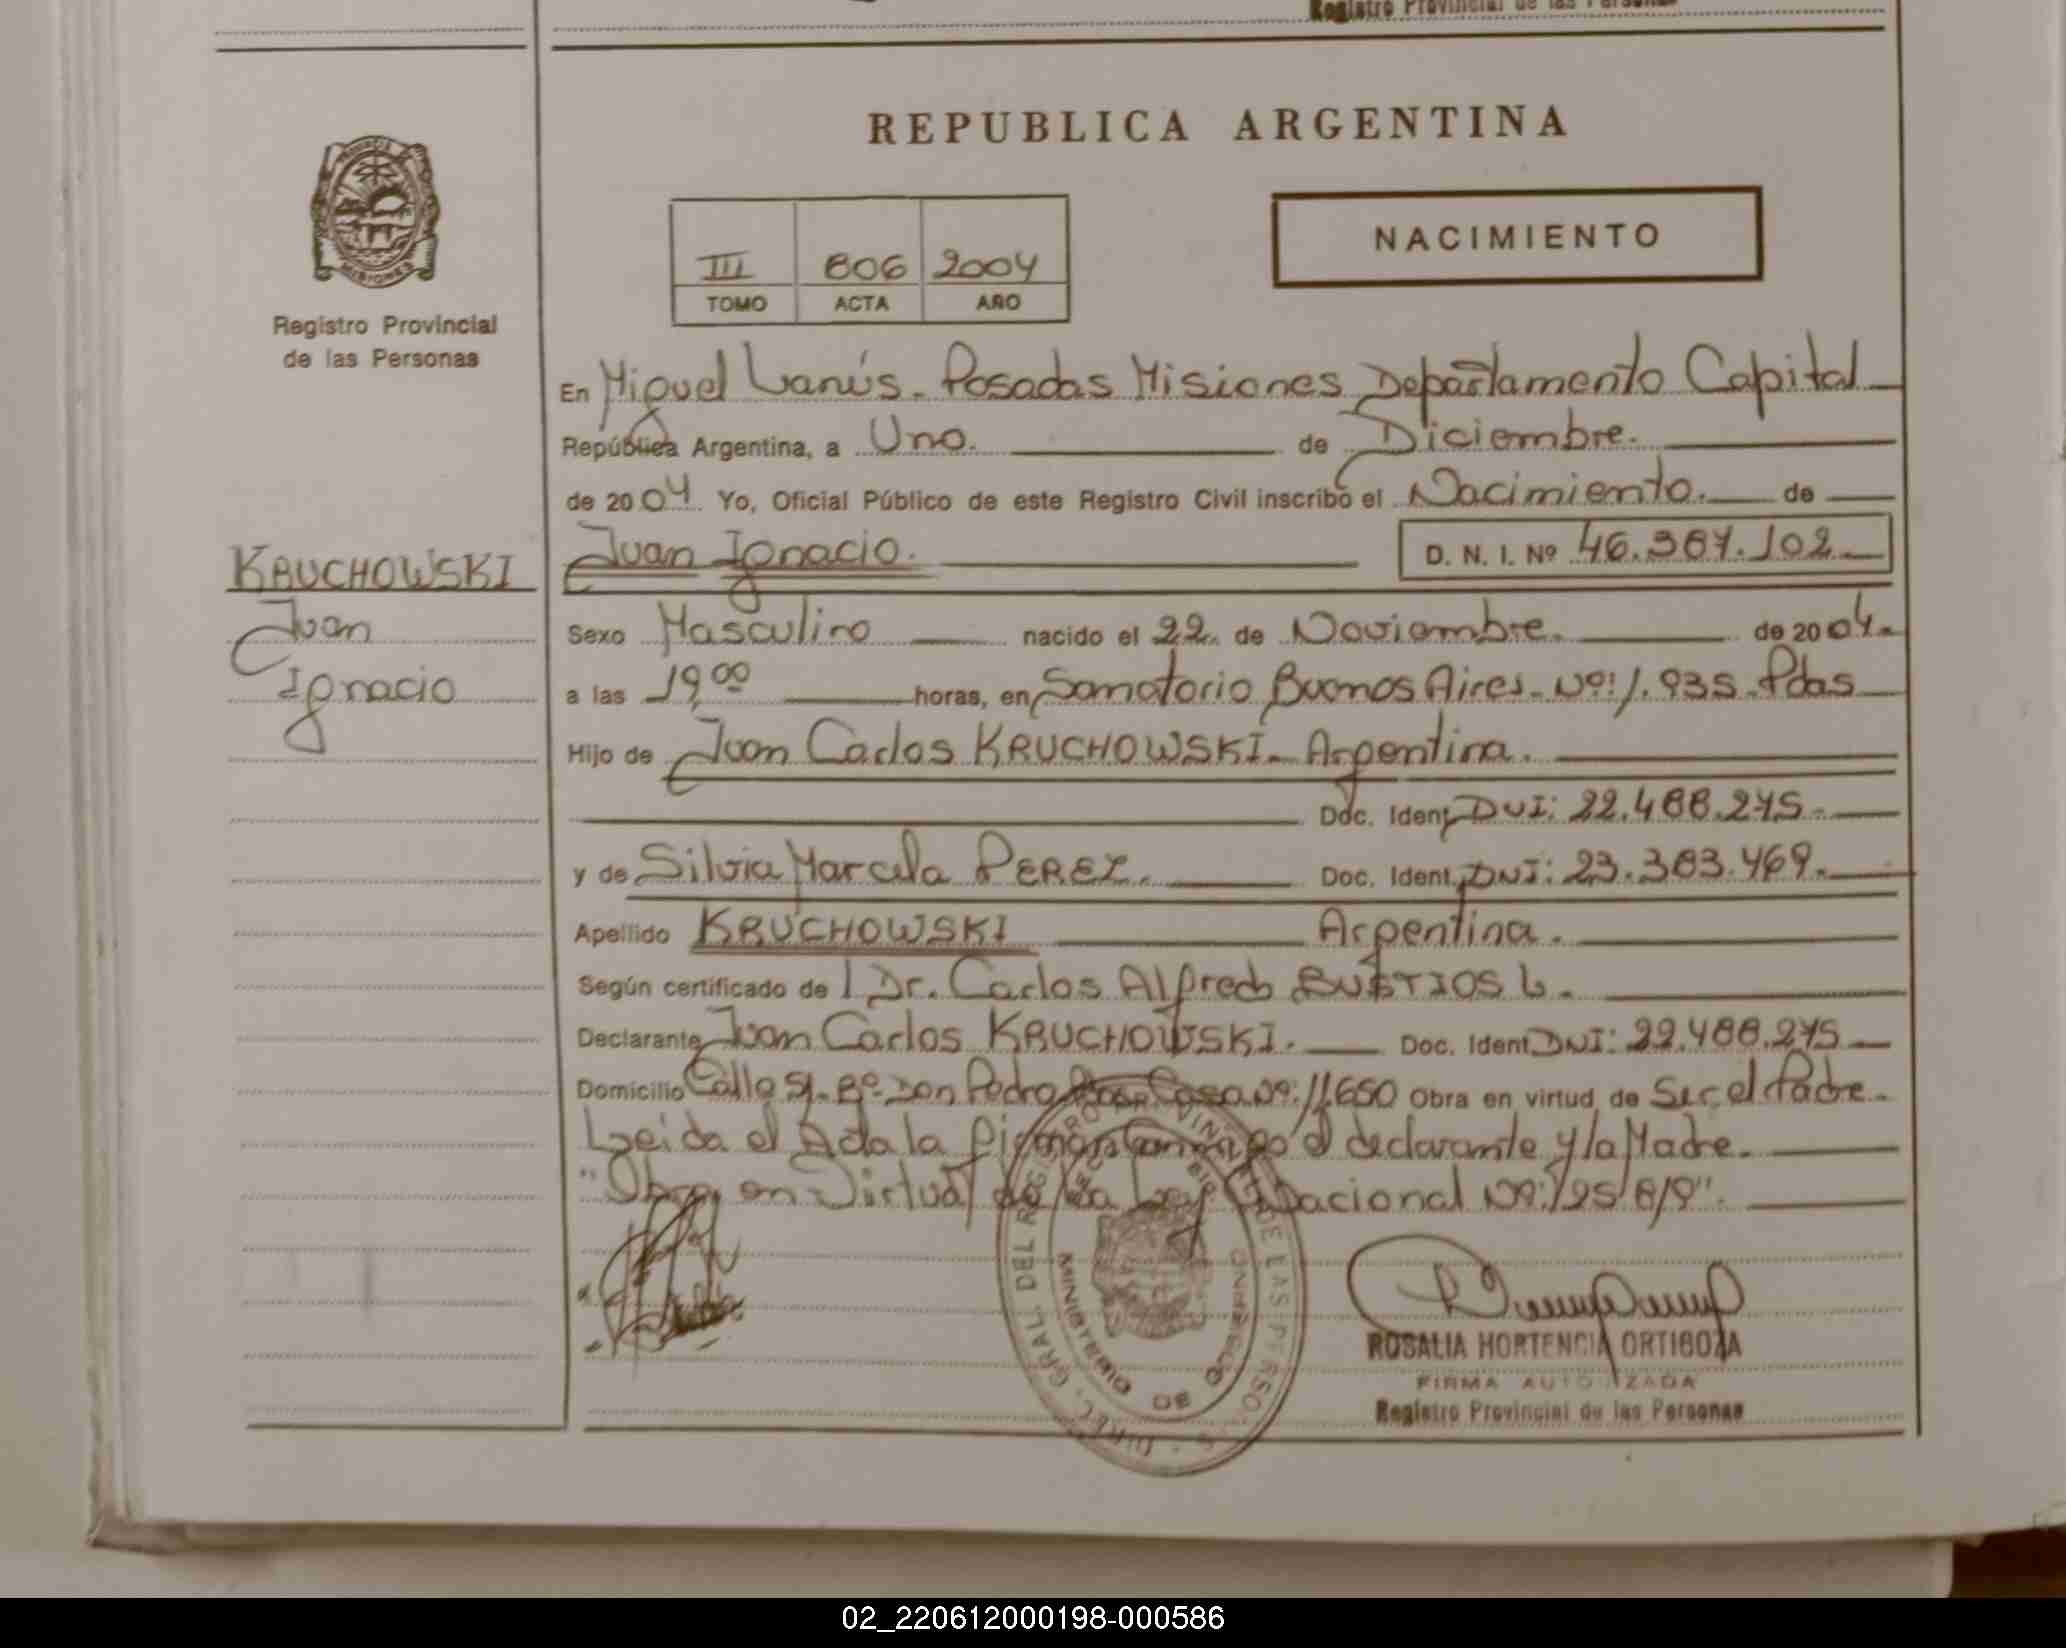 Registro Provincial de las Personas
REPUBLICA ARGENTINA
NACIMIENTO
III 806 2004
TOMO ACTA AÑO
MISIONES
Registro Provincial
de las Personas
En Miguel Lanús. Posadas Misiones Departamento Capital
República Argentina, a Uno. de Diciembre.
de 2004. Yo, Oficial Público de este Registro Civil inscribo el Nacimiento. de
KRUCHOWSKI
Juan
Ignacio
Juan Ignacio. D. N. I. Nº 46.367.102
Sexo Masculino nacido el 22 de Noviembre. de 2004.
a las 19,00 horas, en Sanatorio Buenos Aires. Nº: 1.935. Pdas
Hijo de Juan Carlos KRUCHOWSKI. Argentina.
Doc. Ident. DNI: 22.488.275.
y de Silvia Marcela PEREZ. Doc. Ident. DNI: 23.383.469.
Apellido KRUCHOWSKI Argentina.
Según certificado de Dr. Carlos Alfredo BUSTIOS L.
Declarante Juan Carlos KRUCHOWSKI. Doc. Ident. DNI: 22.488.275
Domicilio Calle Bº Don Pedro Casa Nº: 11.650 Obra en virtud de Ser el Padre.
Leida el Acta la firman conmigo el declarante y la Madre.
"Obra en Virtud de la Ley Nacional Nº: 25.819".
ROSALIA HORTENCIA ORTIGOZA
FIRMA AUTORIZADA
Registro Provincial de las Personas
02_220612000198-000586